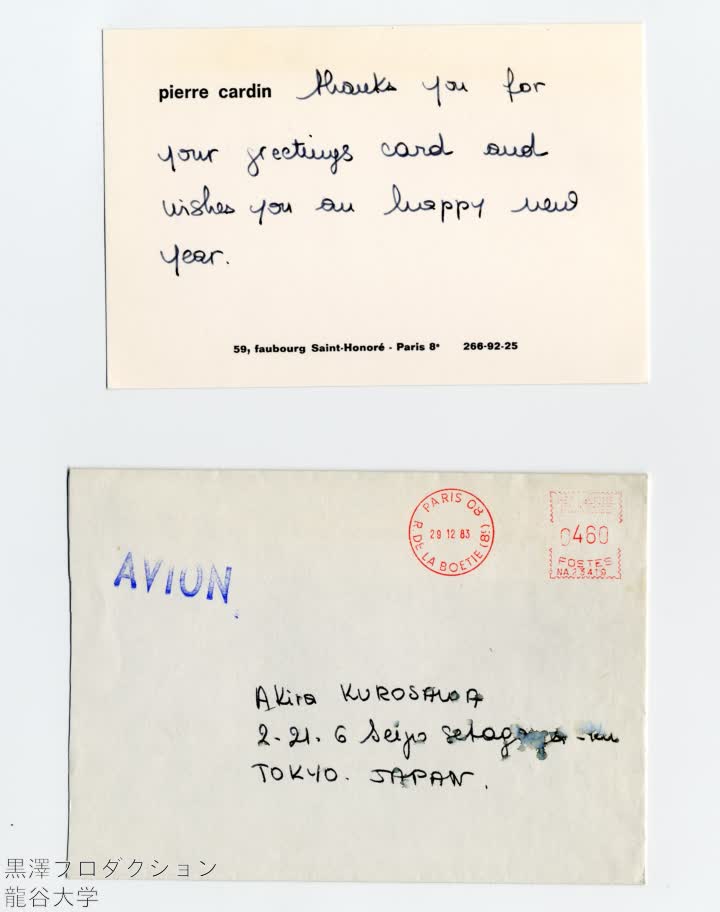 pierre cardin thanks you for
your greetings card and
wishes you an happy new
year.
59, faubourg Saint-Honoré - Paris 8e 266-92-25
PARIS 08
29 12 83
R. DE LA BOETIE (8e)
0460
POSTES
AVION
Akira KUROSAWA
2-21-6 Seijo Setagaya-ku
TOKYO. JAPAN.
黒澤プロダクション
龍谷大学